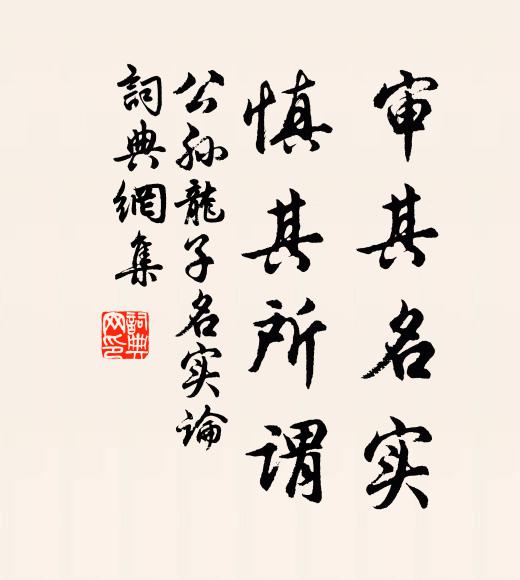 审其名实
慎其所谓
公孙龍子名实論
詞典網集
詞典
网印